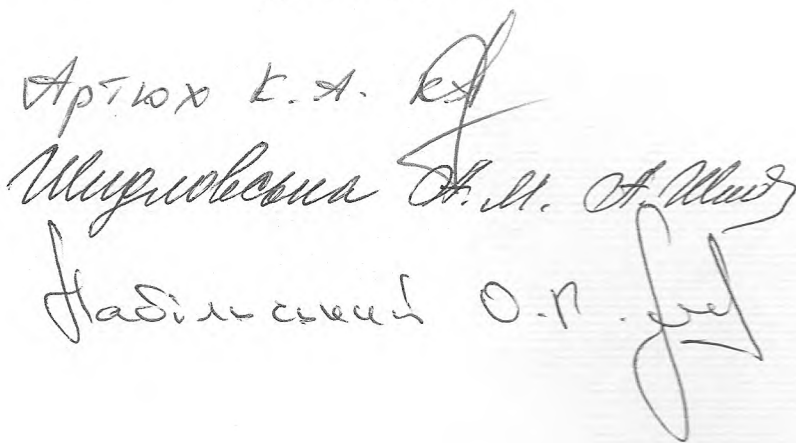 Артюх К. А.
Шидловська А. М. А. Шид
Набільський О. Р.